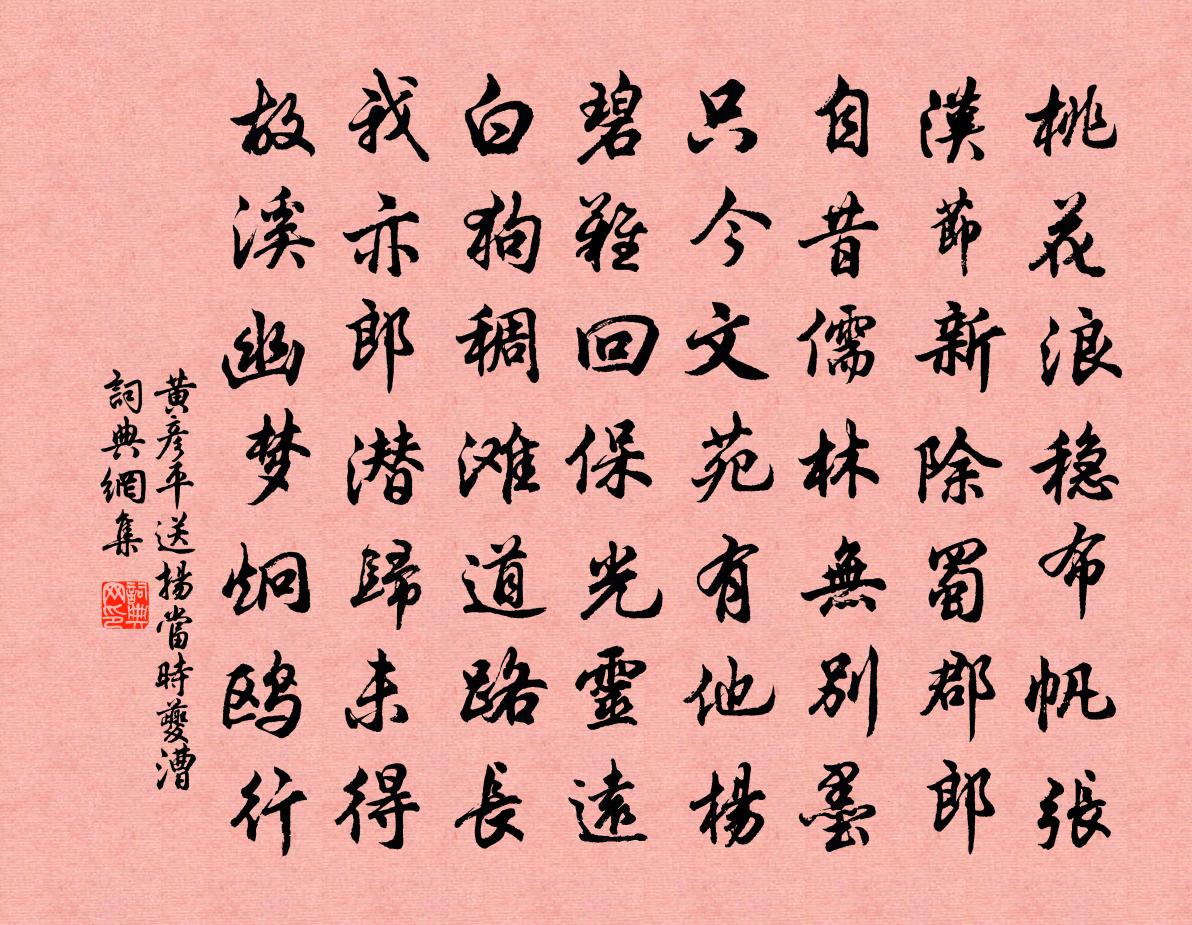 桃花浪稳布帆張
漢節新除蜀郡郎
自昔儒林無別墨
只今文苑有他楊
碧雞回保光靈遠
白狗稠滩道路長
我亦郎潜歸未得
故溪幽梦炯鸥行
黃彦平送揚當時夔漕
詞典網集
詞典网印